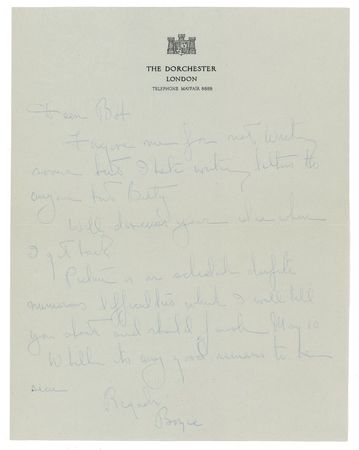 THE DORCHESTER
LONDON
TELEPHONE MAYFAIR 8888
Dear Bob
Forgive me for not writing
sooner but I hate writing letters to
anyone but Betty
Will discuss your idea when
I get back
Picture is on schedule despite
numerous difficulties which I will tell
you about and should finish May 10
Whether its any good remains to be
seen
Regards